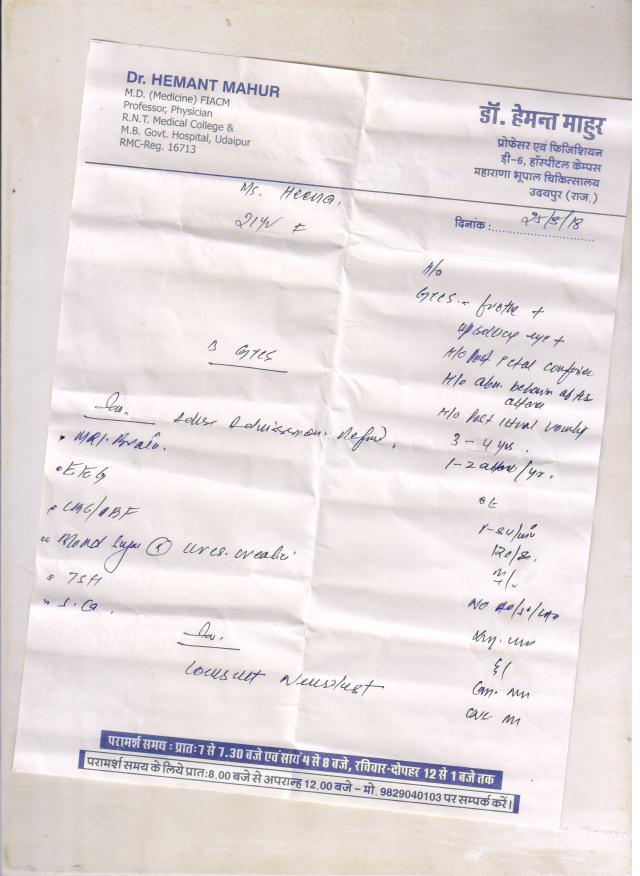 Dr. HEMANT MAHUR
M.D. (Medicine) FIACM
Professor, Physician
R.N.T. Medical College &
M.B. Govt. Hospital, Udaipur
RMC-Reg. 16713
डॉ. हेमन्त माहुर
प्रोफेसर एवं फिजिशियन
डी-6, हॉस्पीटल केम्पस
महाराणा भूपाल चिकित्सालय
उदयपुर (राज.)
Ms. Heena.
21yr F
दिनांक :
H/o
GTCS - froth +
uprolling eye +
H/o Post ictal confusion
H/o abn. behavior after
H/o Post ictal
3 - 4 yrs.
1-2 /yr.
GTCS
Inv. Advise Admission. Refused.
• MRI. Brain.
• EEG
• CBC/PBF
• Blood Sugar (R) urea. creatini
• TSH
• S. Ca.
O/E
120/80.
Adv.
Consult Neurologist
परामर्श समय : प्रातः 7 से 7.30 बजे एवं सायं 4 से 8 बजे, रविवार-दोपहर 12 से 1 बजे तक
परामर्श समय के लिये प्रातः 8.00 बजे से अपरान्ह 12.00 बजे – मो. 9829040103 पर सम्पर्क करें।